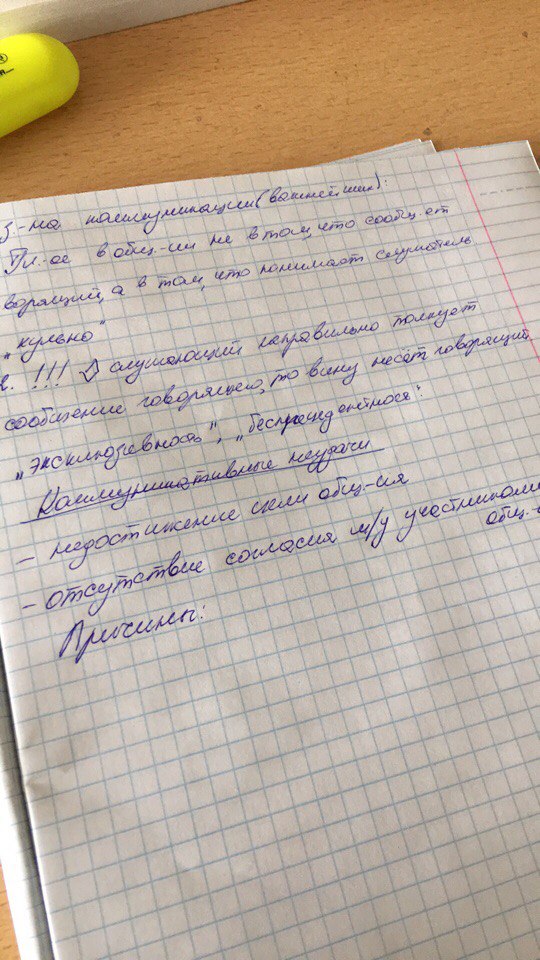 З-на коммуникации (важнейшие):
Гл.-ое в общ-ии не в том, что сообщ. ет
ворящий, а в том, что понимает слушатель
"культно"
2. !!! слушающий неправильно толкует
сообщение говорящего, то вину несёт говорящий
"эксклюзивность", "беспрецедентность".
Коммуникативные неудачи
– недостижение цели общ-ия
– отсутствие согласия м/у участниками
общ.-
Причины: